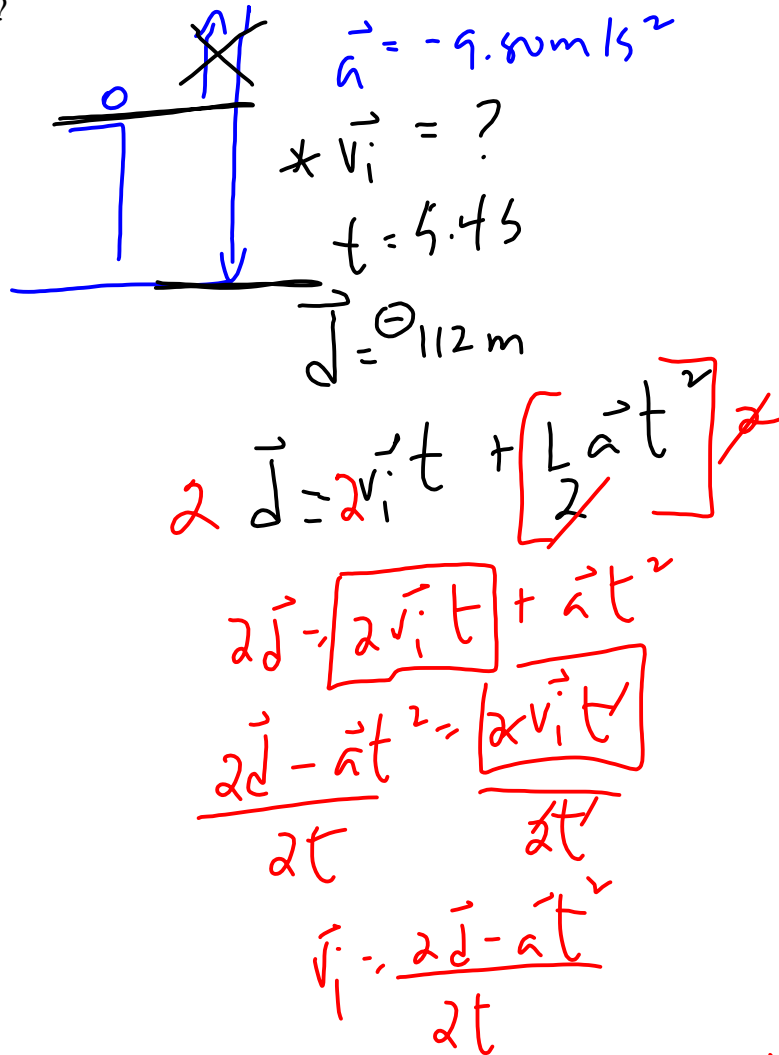 ?
O
a⃗ = -9.80m/s²
* v⃗ᵢ = ?
t = 5.45
d⃗ = ⊖112m
2 d⃗ = 2v⃗ᵢt + [1/2 a⃗t²]2
2d⃗ = 2v⃗ᵢt + a⃗t²
(2d⃗ - a⃗t²)/2t = 2v⃗ᵢt/2t
v⃗ᵢ = (2d⃗ - a⃗t²)/2t